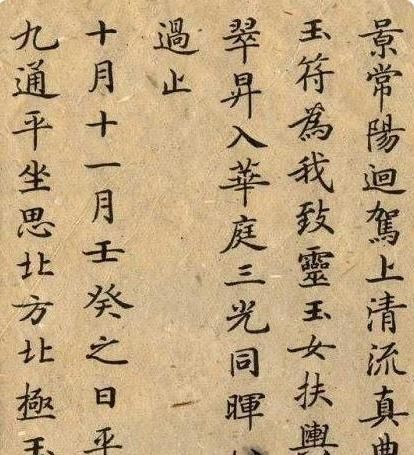 景常陽迴駕上清流真曲
玉符為我致靈玉女扶輿
翠昇入華庭三光同暉
過止
十月十一月壬癸之日平
九通平坐思北方北極玉